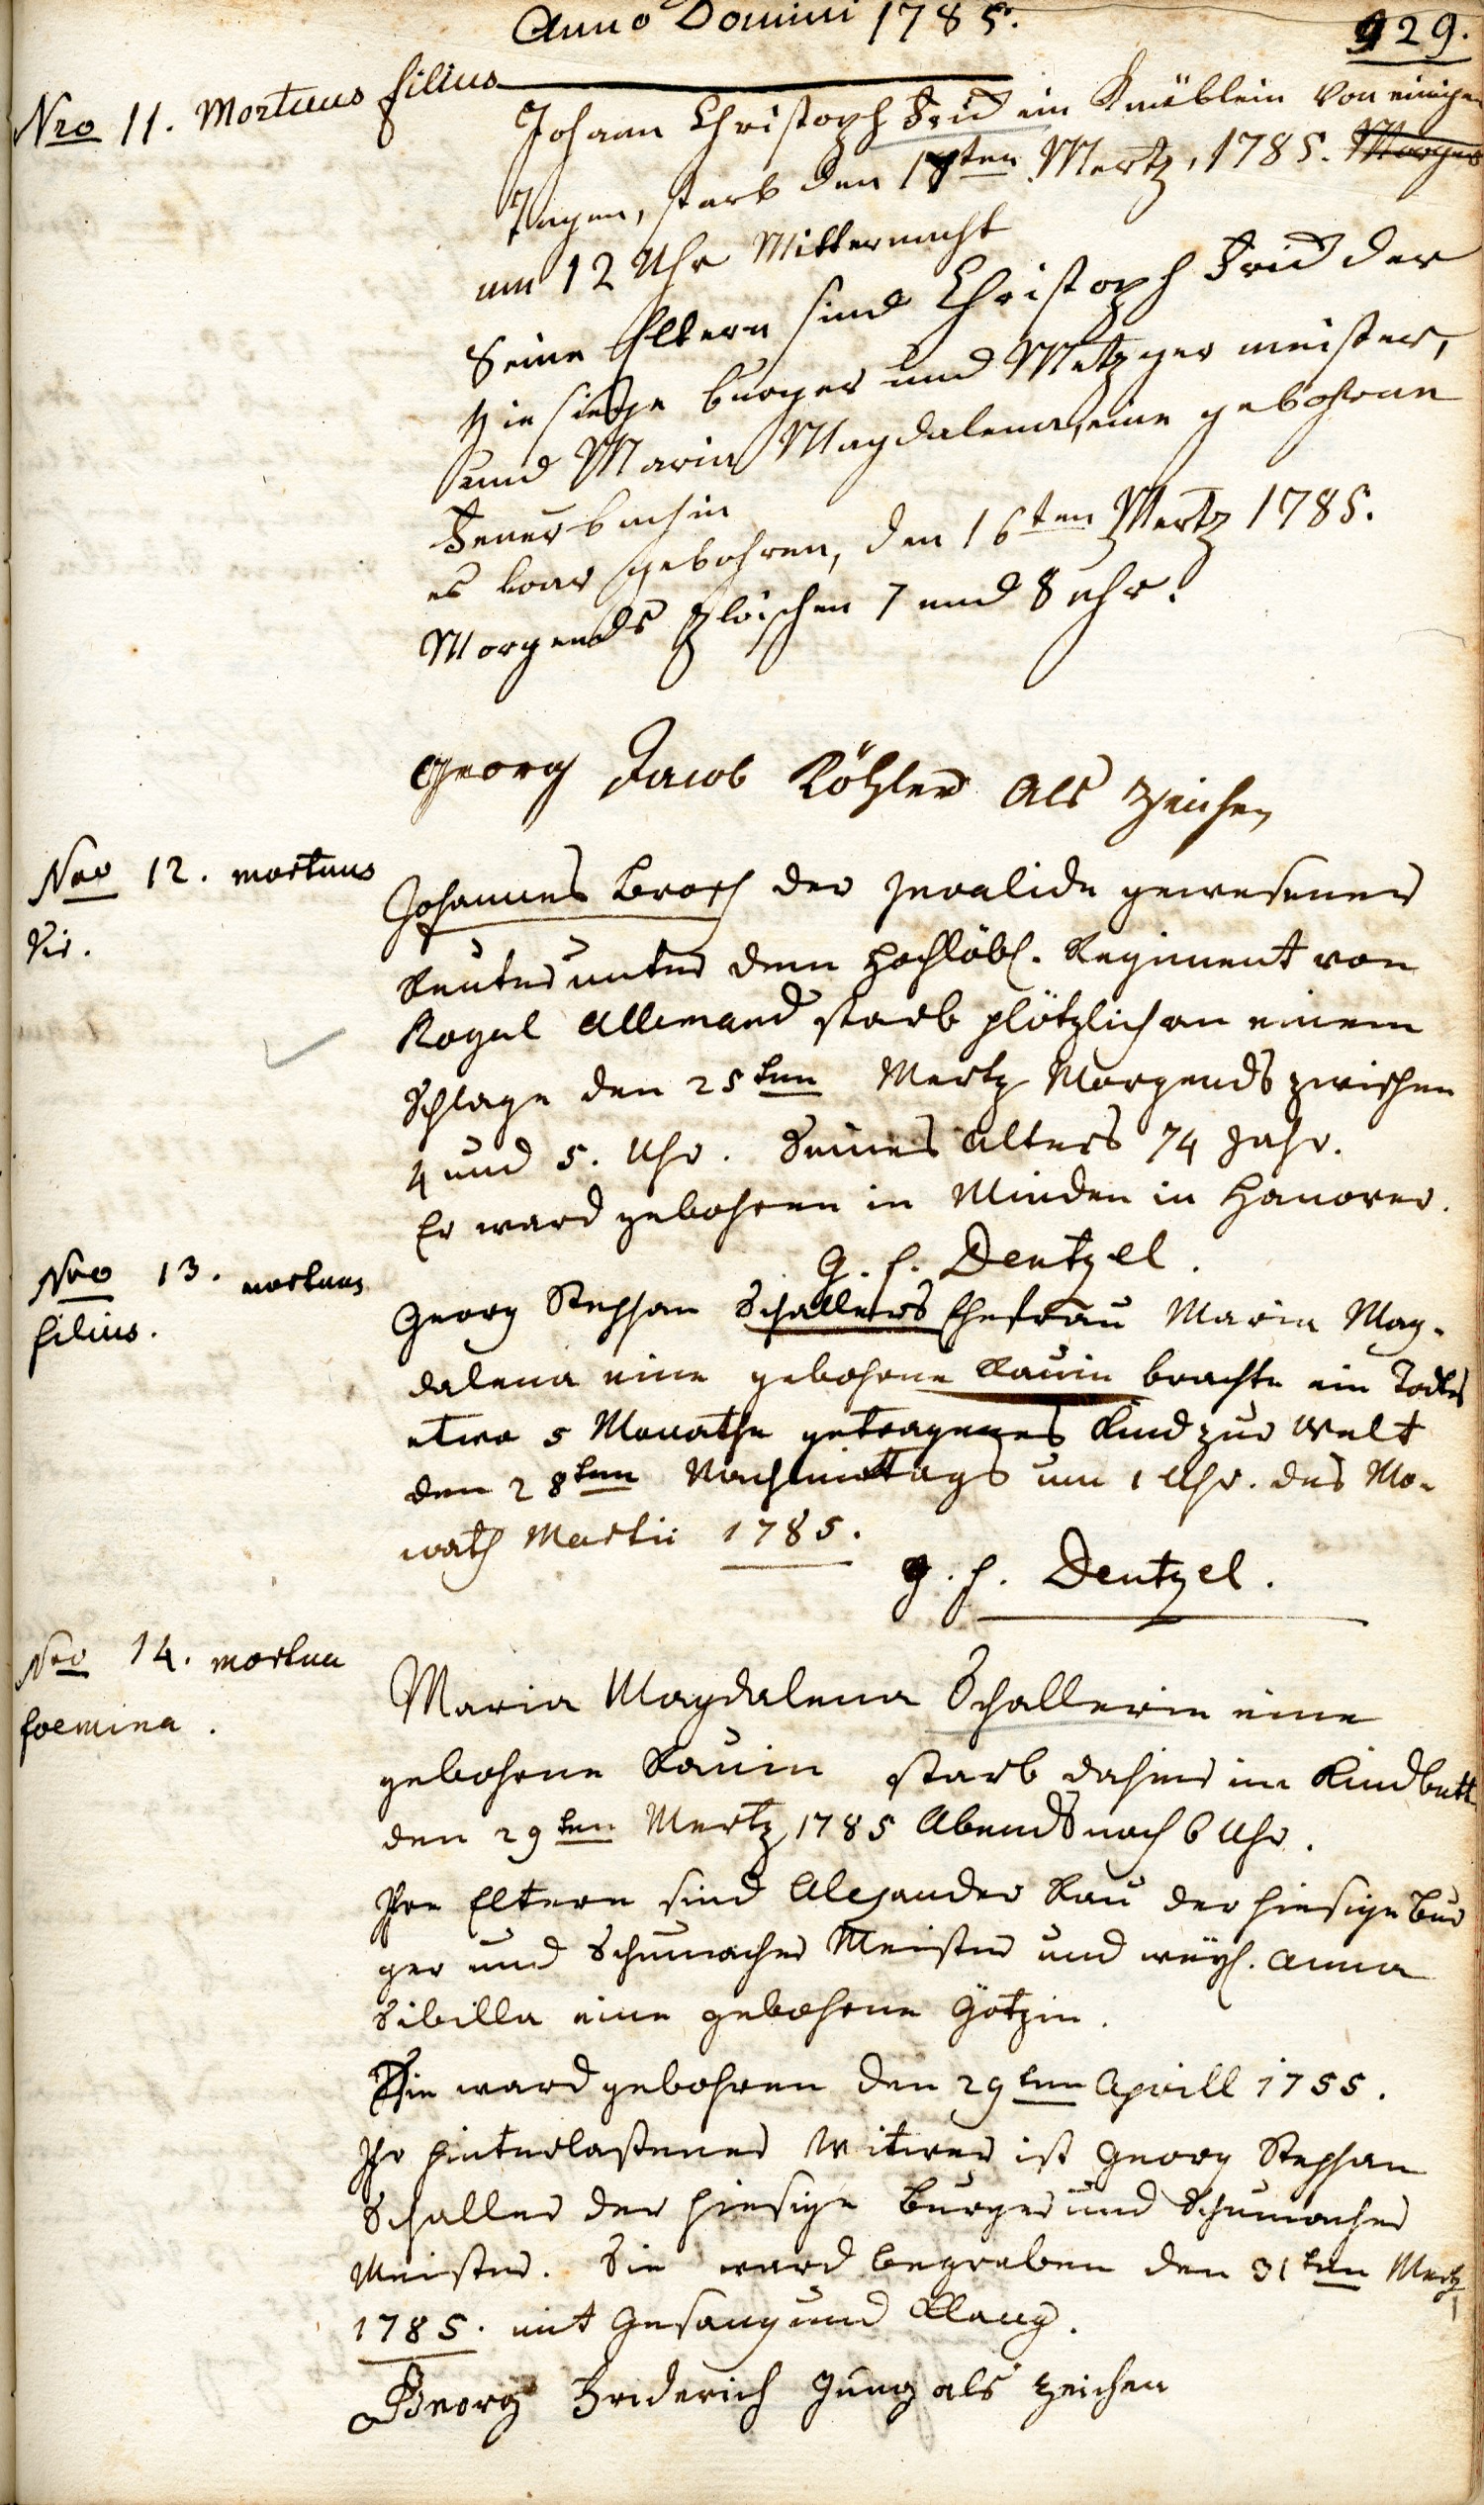 Anno Domini 1785.
929.
Nro 11. Mortuus filius
Johann Christoph Frid ein Knäblein von einigen
Tagen, starb den 18ten Mertz, 1785. Morgens
um 12 Uhr Mitternacht
Seine Eltern sind Christoph Frid der
hiesige burger und Metzger meister,
und Maria Magdalena, eine gebohrne
Feuerbachin
es war gebohren, den 16ten Mertz 1785.
Morgends zwischen 7 und 8 uhr.
Georg Jacob Köhler als zeichen
Nro 12. mortuus
Vir.
Johannes Broch der Invalide gewesener
Reuter unter dem Hochlöbl. Regiment von
Royal Allemand starb plötzlich an einem
Schlage den 25ten Mertz Morgends zwischen
4 und 5. Uhr. Seines Alters 74 Jahr.
Er ward gebohren in Minden in Hanover.
G. F. Dentzel.
Nro 13. mortuus
filius.
Georg Stephan Schallers Ehefrau Maria Mag-
dalena eine gebohrne Rauin brachte ein Todtes
etwa 5 Monathe getragenes Kind zur Welt
den 28ten Nachmittags um 1 Uhr. des Mo-
nath Martii 1785.
G. F. Dentzel.
Nro 14. mortua
foemina.
Maria Magdalena Schallerin eine
gebohrne Rauin starb dahier im Kindbett
den 29ten Mertz 1785 Abends nach 6 Uhr.
Ihre Eltern sind Alexander Rau der hiesige Bur
ger und Schumacher Meister und weyl. Anna
Sibilla eine gebohrne Götzin.
Sie ward gebohren den 29ten Aprill 1755.
Ihr hinterlaßener Witwer ist Georg Stephan
Schaller der hiesige Burger und Schumacher
Meister. Sie ward begraben den 31ten Mertz
1785. mit Gesang und Klang.
Georg Friderich Jung als zeichen